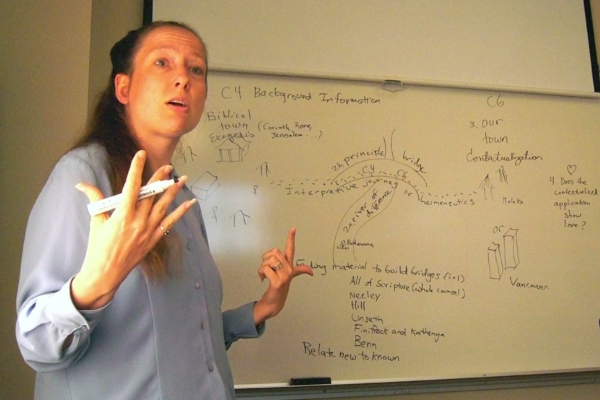 C4 Background Information
C6
Biblical
town (Corinth, Rome,
Exegesis Jerusalem...)
3. Our
town
Contextualization
2b principle bridge
C4 C6
Interpretive journey or hermeneutics
2a river of
difference
4. Does the
contextualized
application
show
love?
or
Vancouver
Finding material to build bridges (i+1)
All of Scripture (whole council)
Neeley
Hill
Unseth
Finifrock and
Benn
Relate new to known